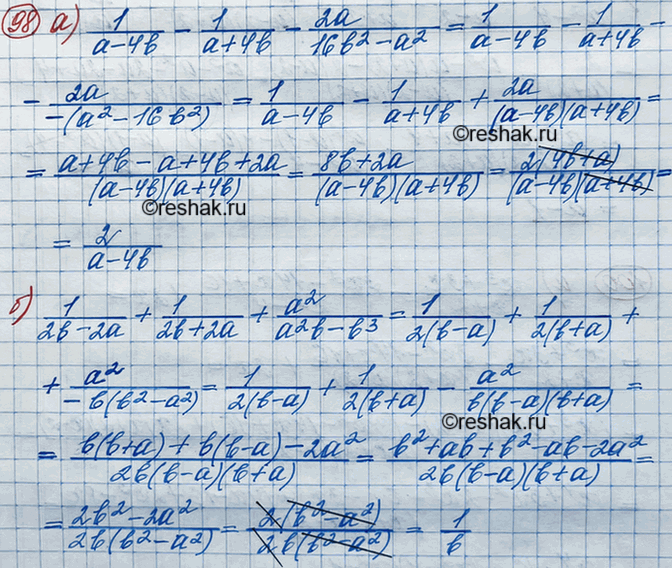 98 а) 1/(a-4b) - 1/(a+4b) - 2a/(16b²-a²) = 1/(a-4b) - 1/(a+4b) -
- 2a/(-(a²-16b²)) = 1/(a-4b) - 1/(a+4b) + 2a/((a-4b)(a+4b)) =
©reshak.ru
= (a+4b-a+4b+2a)/((a-4b)(a+4b)) = (8b+2a)/((a-4b)(a+4b)) = 2(4b+a)/((a-4b)(a+4b)) =
©reshak.ru
= 2/(a-4b)
б) 1/(2b-2a) + 1/(2b+2a) + a²/(a²b-b³) = 1/(2(b-a)) + 1/(2(b+a)) +
+ a²/(-b(b²-a²)) = 1/(2(b-a)) + 1/(2(b+a)) - a²/(b(b-a)(b+a)) =
©reshak.ru
= (b(b+a)+b(b-a)-2a²)/(2b(b-a)(b+a)) = (b²+ab+b²-ab-2a²)/(2b(b-a)(b+a)) =
= (2b²-2a²)/(2b(b²-a²)) = 2(b²-a²)/(2b(b²-a²)) = 1/b